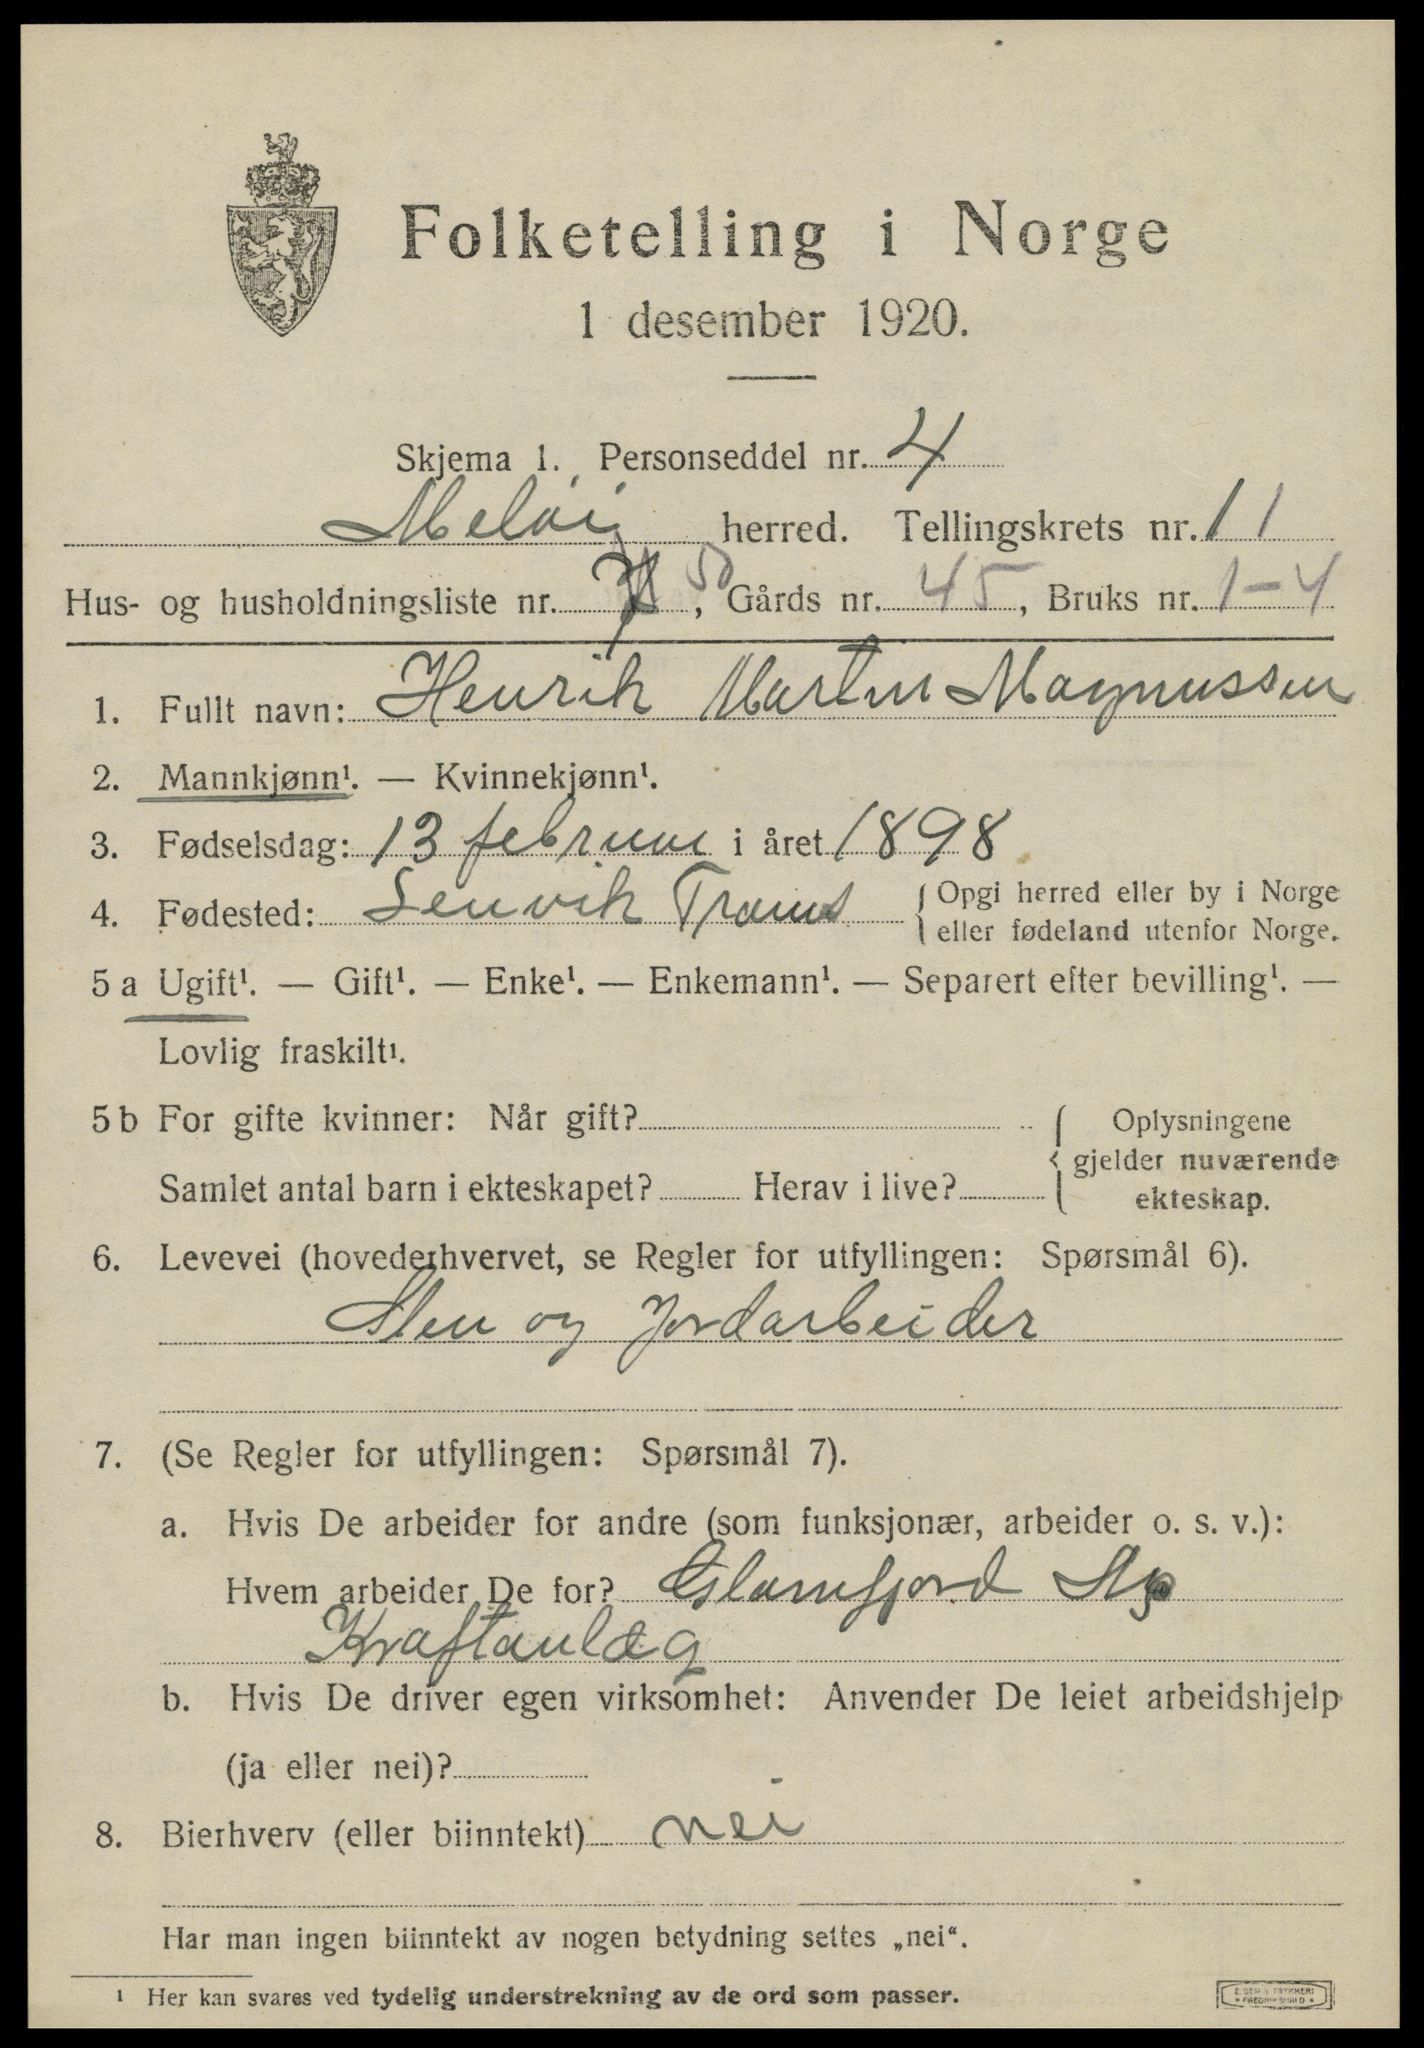 Folketelling i Norge
1 desember 1920.
Skjema 1. Personseddel nr. 4
Meløi herred. Tellingskrets nr. 11
Hus- og husholdningsliste nr. 50, Gårds nr. 45, Bruks nr. 1-4
1. Fullt navn: Henrik Martin Magnussen
2. Mannkjønn¹. — Kvinnekjønn¹.
3. Fødselsdag: 13 februar i året 1898
4. Fødested: Lenvik Troms { Opgi herred eller by i Norge
eller fødeland utenfor Norge.
5 a Ugift¹. — Gift¹. — Enke¹. — Enkemann¹. — Separert efter bevilling¹. —
Lovlig fraskilt¹.
5 b For gifte kvinner: Når gift? { Oplysningene
gjelder nuværende
Samlet antal barn i ekteskapet? Herav i live? ekteskap.
6. Levevei (hovederhvervet, se Regler for utfyllingen: Spørsmål 6).
Sten og Jordarbeider
7. (Se Regler for utfyllingen: Spørsmål 7).
a. Hvis De arbeider for andre (som funksjonær, arbeider o. s. v.):
Hvem arbeider De for? Glomfjord
Kraftanlæg
b. Hvis De driver egen virksomhet: Anvender De leiet arbeidshjelp
(ja eller nei)?
8. Bierhverv (eller biinntekt) nei
Har man ingen biinntekt av nogen betydning settes „nei“.
¹ Her kan svares ved tydelig understrekning av de ord som passer.